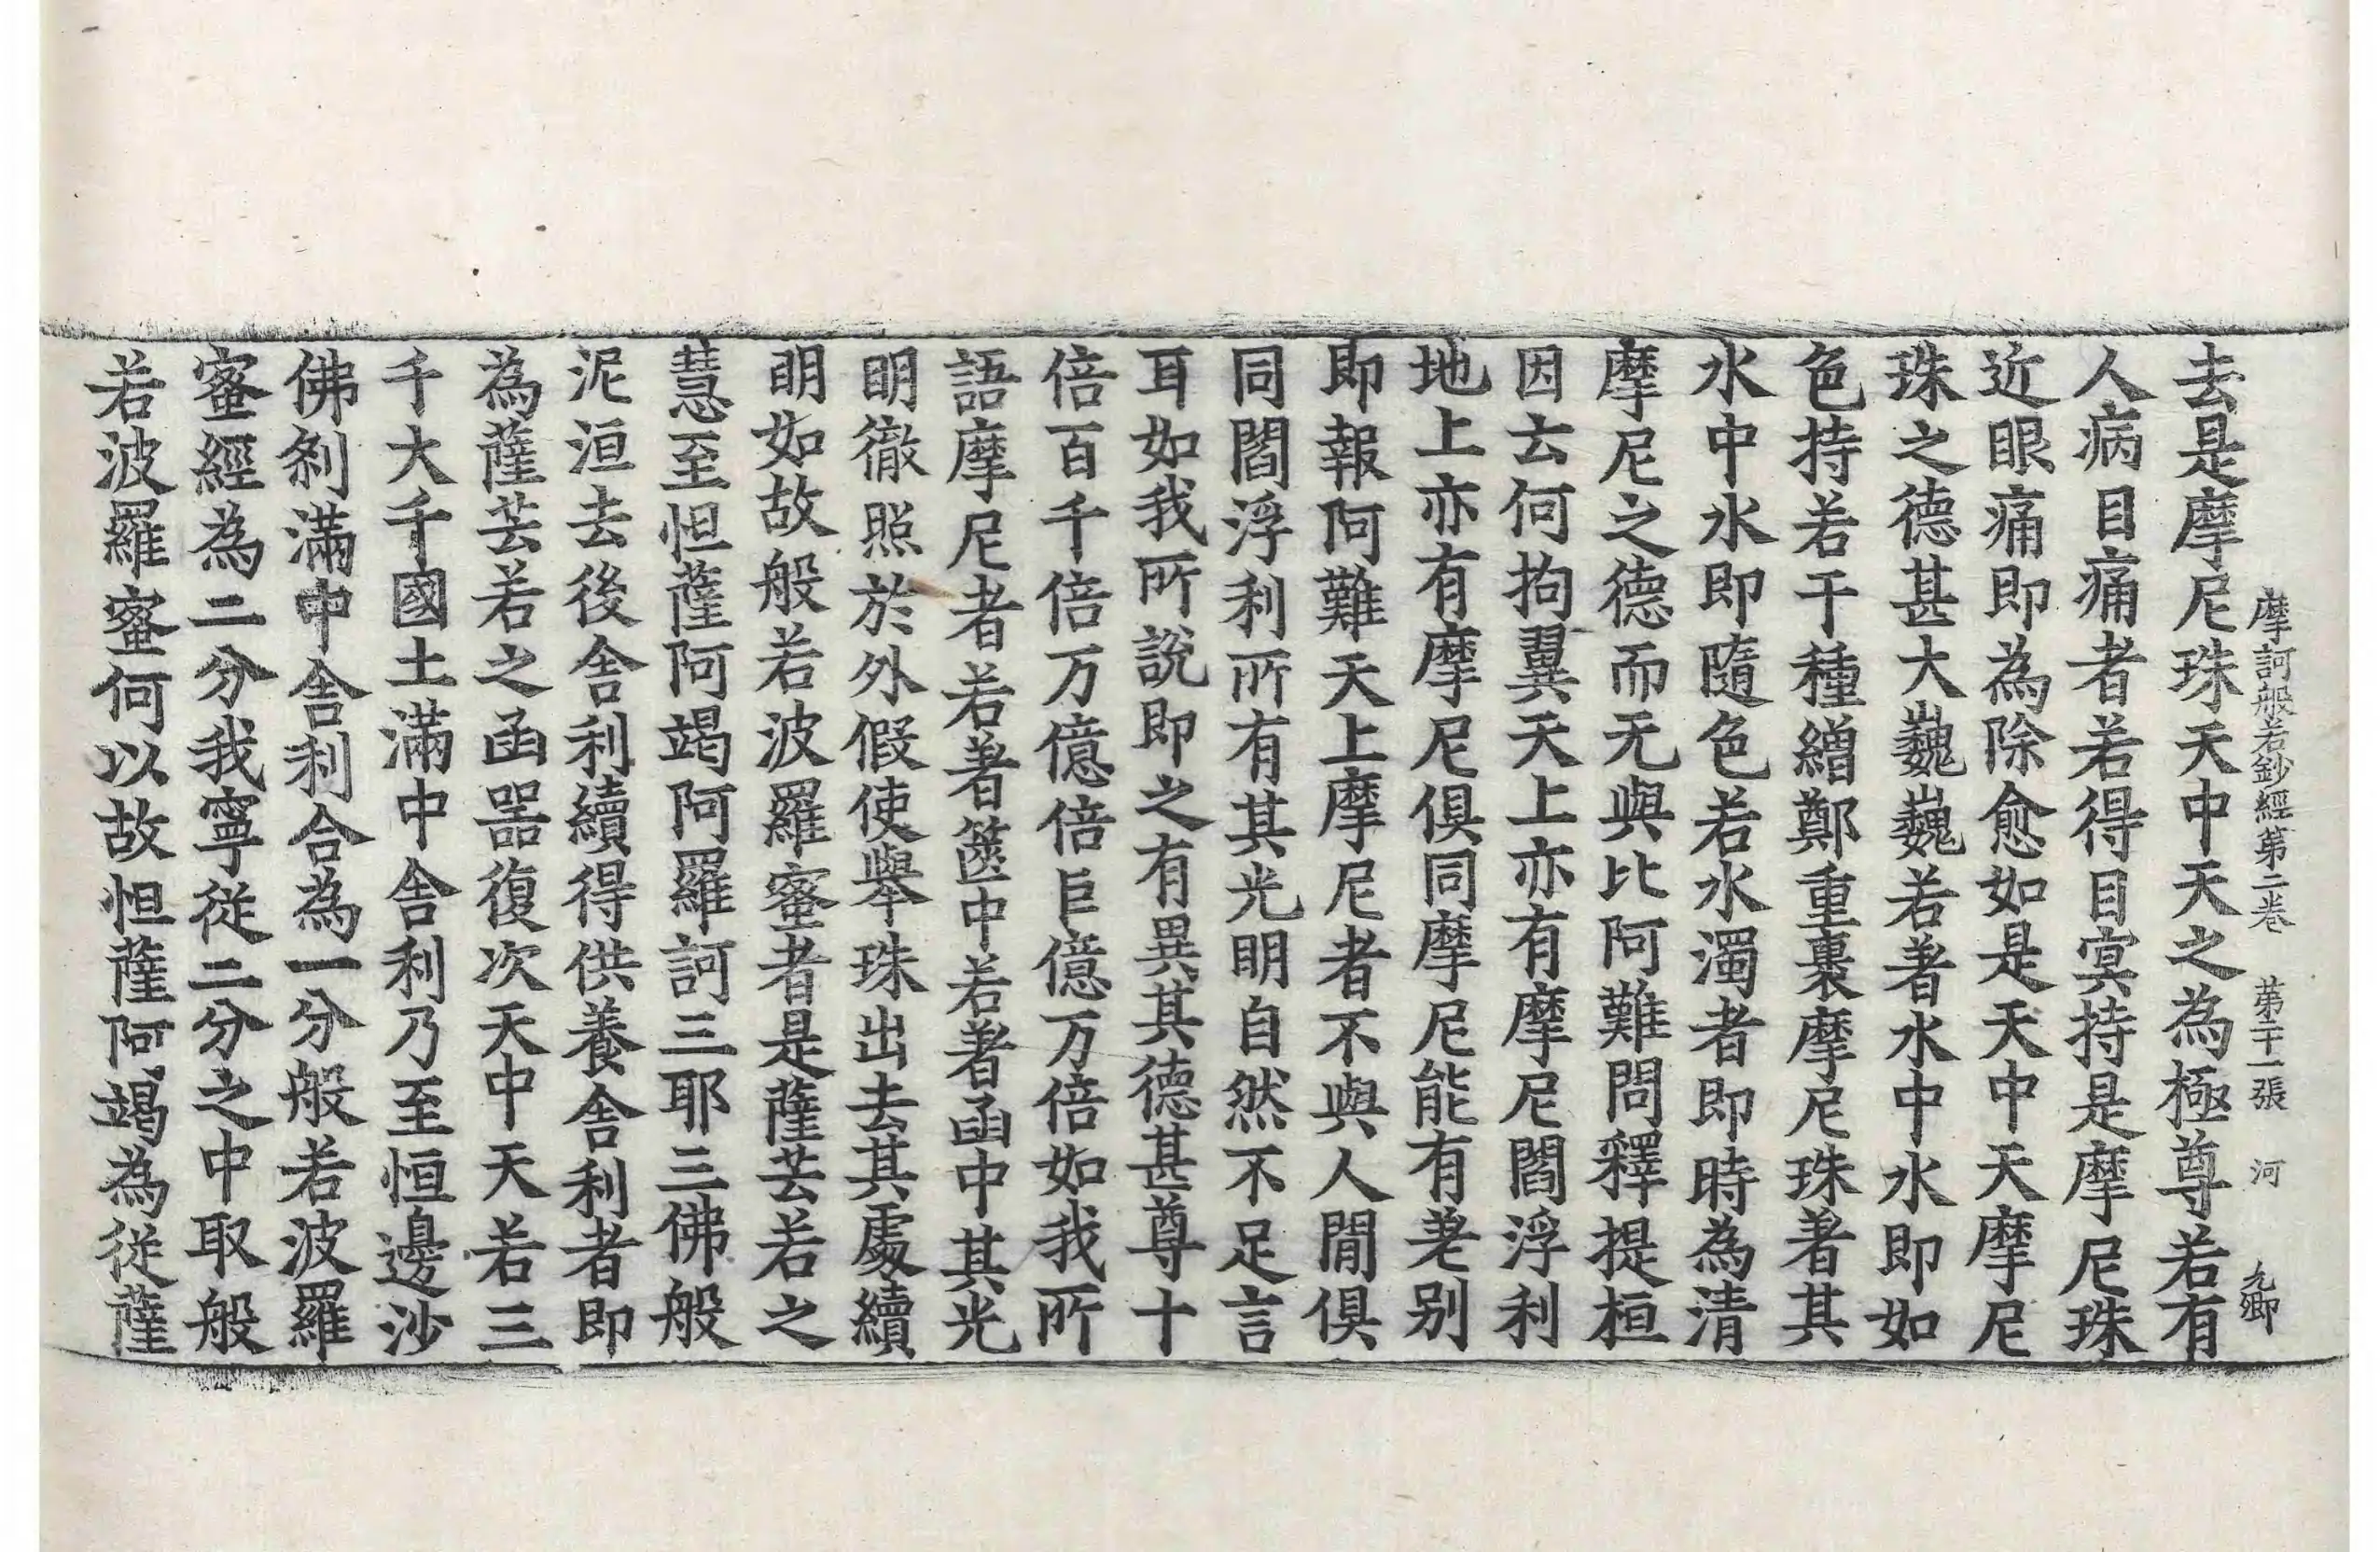 摩訶般若鈔經第二卷 第十一張 河 九卿
去是摩尼珠天中天之為極尊若有
人病目痛者若得目㝠持是摩尼珠
近眼痛即為除愈如是天中天摩尼
珠之德甚大巍巍若著水中水即如
色持若干種繒鄭重裹摩尼珠著其
水中水即隨色若水濁者即時為清
摩尼之德而无與比阿難問釋提桓
因云何拘翼天上亦有摩尼閻浮利
地上亦有摩尼俱同摩尼能有差別
即報阿難天上摩尼者不與人間俱
同閻浮利所有其光明自然不足言
耳如我所說即之有異其德甚尊十
倍百千倍万億倍巨億万倍如我所
語摩尼者若著篋中若著函中其光
明徹照於外假使舉珠出去其處續
明如故般若波羅蜜者是薩芸若之
慧至怛薩阿竭阿羅訶三耶三佛般
泥洹去後舍利續得供養舍利者即
為薩芸若之函器復次天中天若三
千大千國土滿中舍利乃至恒邊沙
佛剎滿中舍利合為一分般若波羅
蜜經為二分我寧從二分之中取般
若波羅蜜何以故怛薩阿竭為從薩